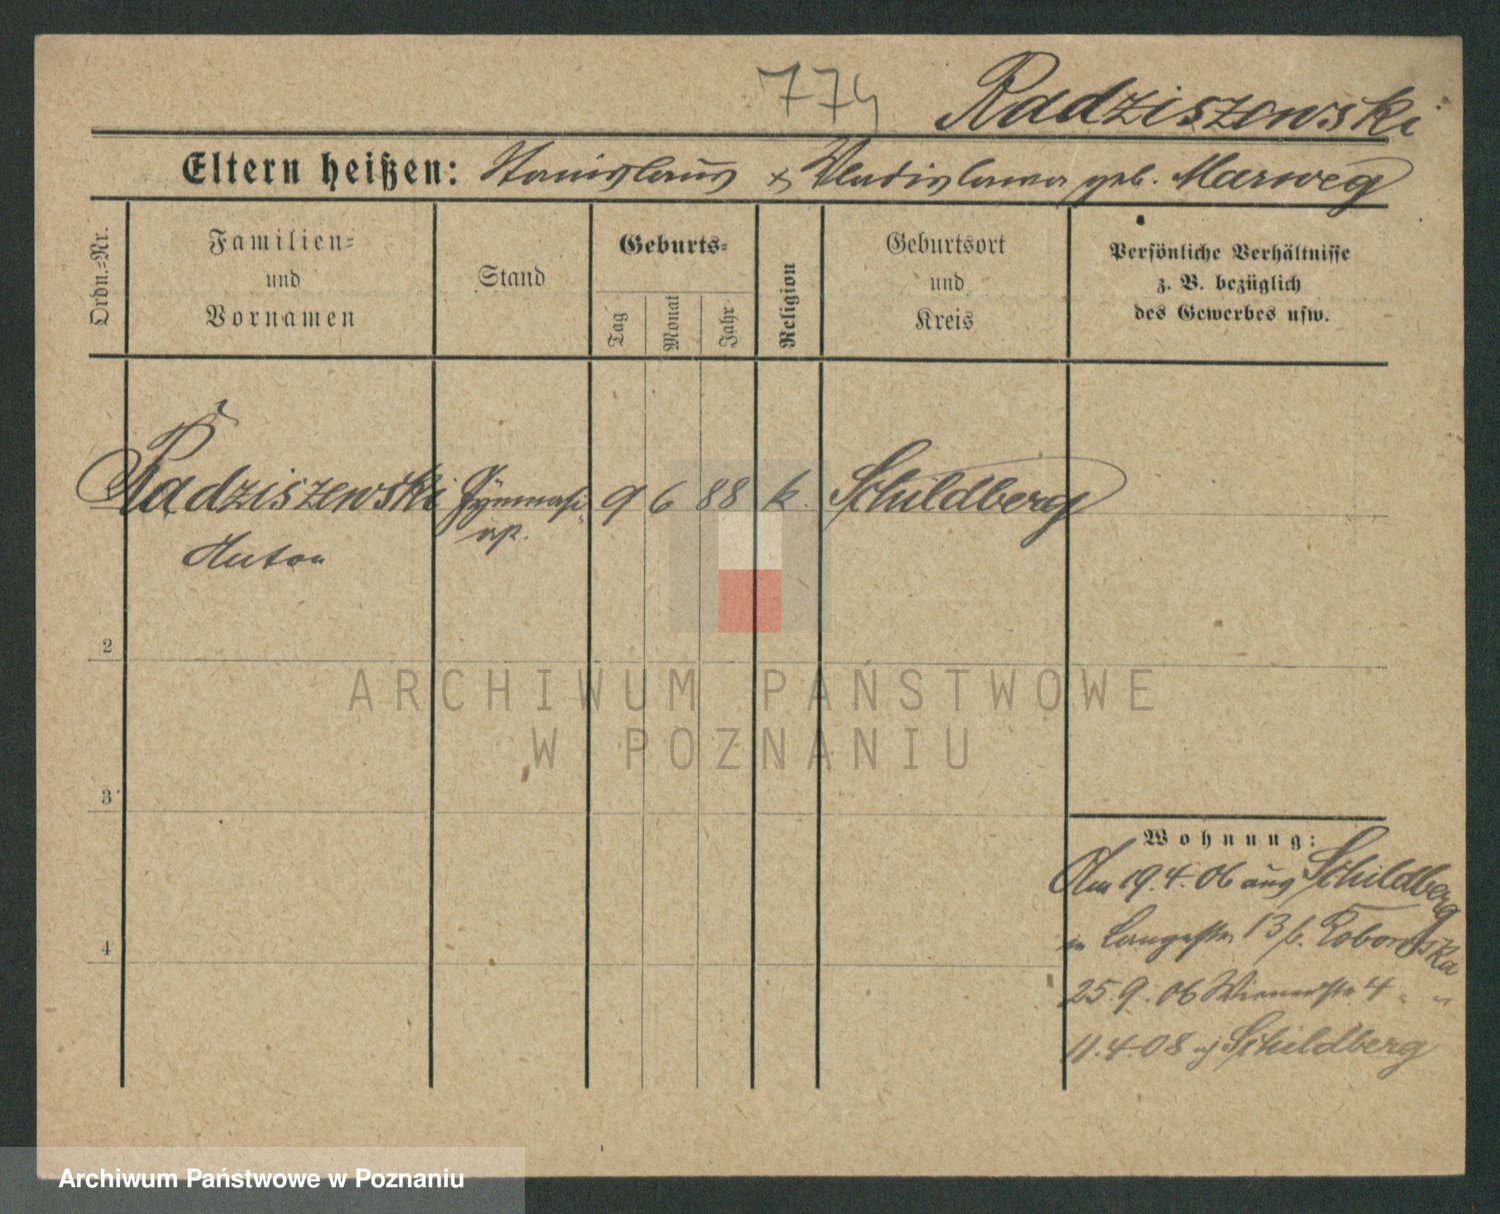 774 Radziszewski
Eltern heißen: Stanislaus & Wladislawa geb. Marweg
Ordn.-Nr.
Familien-
und
Vornamen
Stand
Geburts-
Tag
Monat
Jahr
Religion
Geburtsort
und
Kreis
Persönliche Verhältnisse
z. B. bezüglich
des Gewerbes usw.
Radziszewski Gymnasi- 9 6 88 k. Schildberg
Anton
2
3
4
ARCHIWUM PAŃSTWOWE
W POZNANIU
Wohnung:
Am 19.4.06 aus Schildberg
in Langestr 13 b.
25.9.06 Wienerstr 4 " "
11.4.08 Schildberg
Archiwum Państwowe w Poznaniu